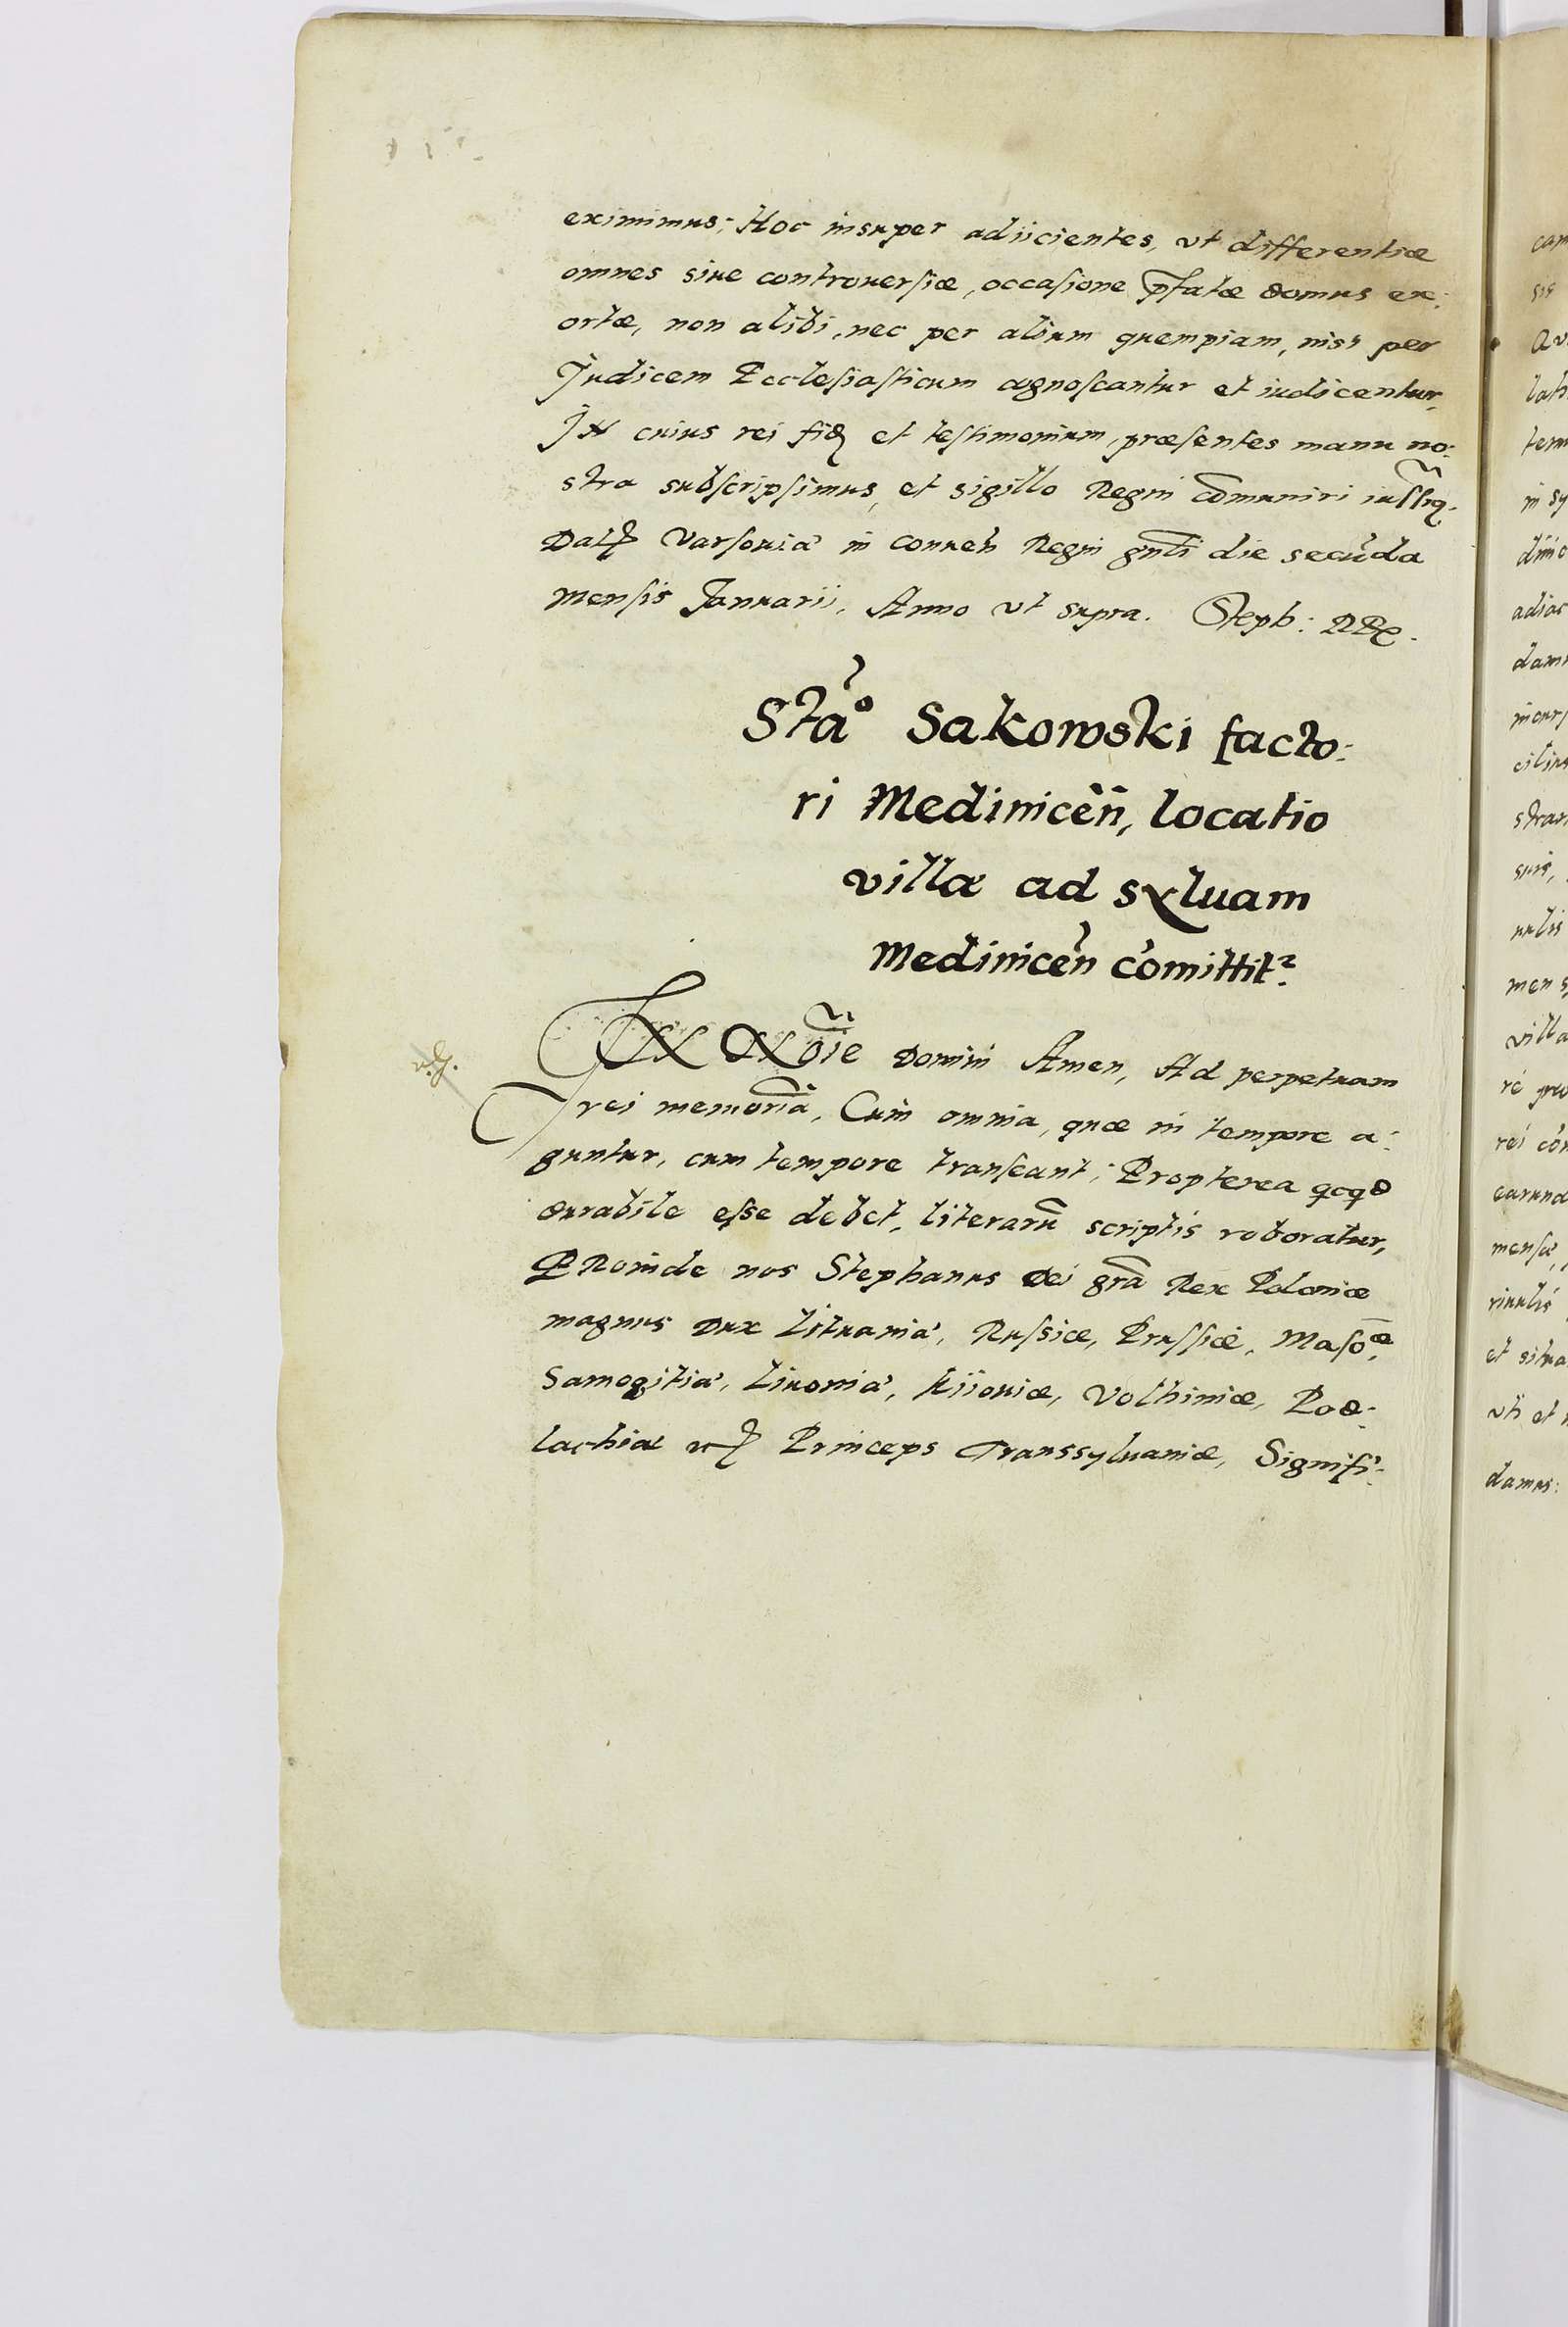 eximimus; Hoc insuper adiicientes, vt differentiæ
omnes siue controuersiæ, occasione p̃fatæ domus ex:
ortæ, non alibi, nec per alium quempiam, nisi per
Judicem Ecclesiasticum cognoscantur et iudicentur,
IN cuius rei fidę et testimonium, præsentes manu no:
stra subscripsimus, et sigillo Regni cõmuniri iussiq.
Datę Varsouiæ in conuen̄ Regni gn̄li die secūda
mensis Januarii, Anno vt supra. Steph: REx.
Sta͠o Sakowski facto:
ri Medinicen̄, locatio
villæ ad syluam
Medinicen̄ cōmittitᵣ.
IN NOĩe Domini Amen, Ad perpetuam
rei memoriã, Cum omnia, quæ in tempore a:
guntur, cum tempore transeant; Propterea qcqd
durabile esse debet, literarũ scriptis roboratur,
PRoinde nos Stephanus Dei grã Rex Poloniæ
magnus Dux Lituaniæ, Russiæ, Prussiæ, Masoᵉ̃,
Samogitiæ, Liuoniæ, Kiiouiæ, Volhiniæ, Pod:
lachiæ ꝛcę Princeps Transsyluaniæ, Signifi:
cam
sis
lat
term
in sy
adiac
damu
incurs
men s
villa
rei cō
earund
mensæ
riuulis
et situa
vti et
damus: